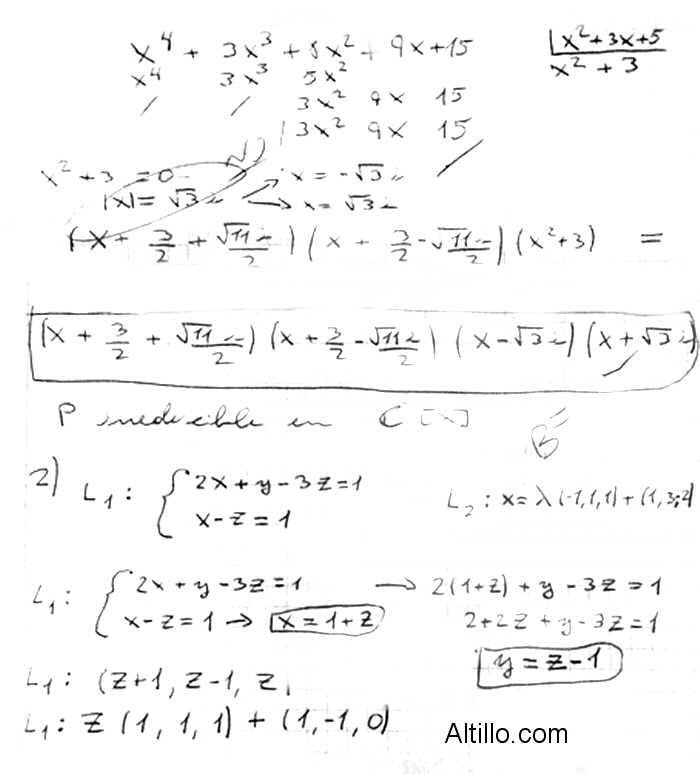 x⁴ + 3x³ + 8x² + 9x + 15 | x² + 3x + 5
x⁴ 3x³ 5x² x² + 3
3x² 9x 15
3x² 9x 15
x² + 3 = 0 x = -√3 i
|x| = √3 i → x = √3 i
(x + 3/2 + √11 i/2) (x + 3/2 - √11 i/2) (x² + 3) =
(x + 3/2 + √11 i/2) (x + 3/2 - √11 i/2) (x - √3 i) (x + √3 i)
P en C [x] B
2) L₁: { 2x + y - 3z = 1 L₂: x = λ (-1, 1, 1) + (1, 3,
x - z = 1
L₁: { 2x + y - 3z = 1 → 2(1+z) + y - 3z = 1
x - z = 1 → x = 1 + z 2 + 2z + y - 3z = 1
y = z - 1
L₁: (z+1, z-1, z,
L₁: z (1, 1, 1) + (1, -1, 0)
Altillo.com